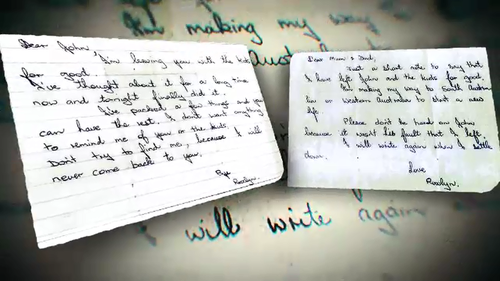 I'm making my way
Dear John,
I'm leaving you with the kids
for good.
I've thought about it for a long time
now and tonight finally did it.
I've packed a few things and you
can have the rest. I don't want anything
to remind me of you or the kids
Don't try to find me, because I will
never come back to you.
Bye
Dear Mum & Dad,
Just a short note to say that
I have left John and the kids for good.
I'm making my way to South
or Western Australia to start a new
life
Please don't be hard on John
because it wasn't his fault that I left.
I will write again when I settle
down.
Love
will write again